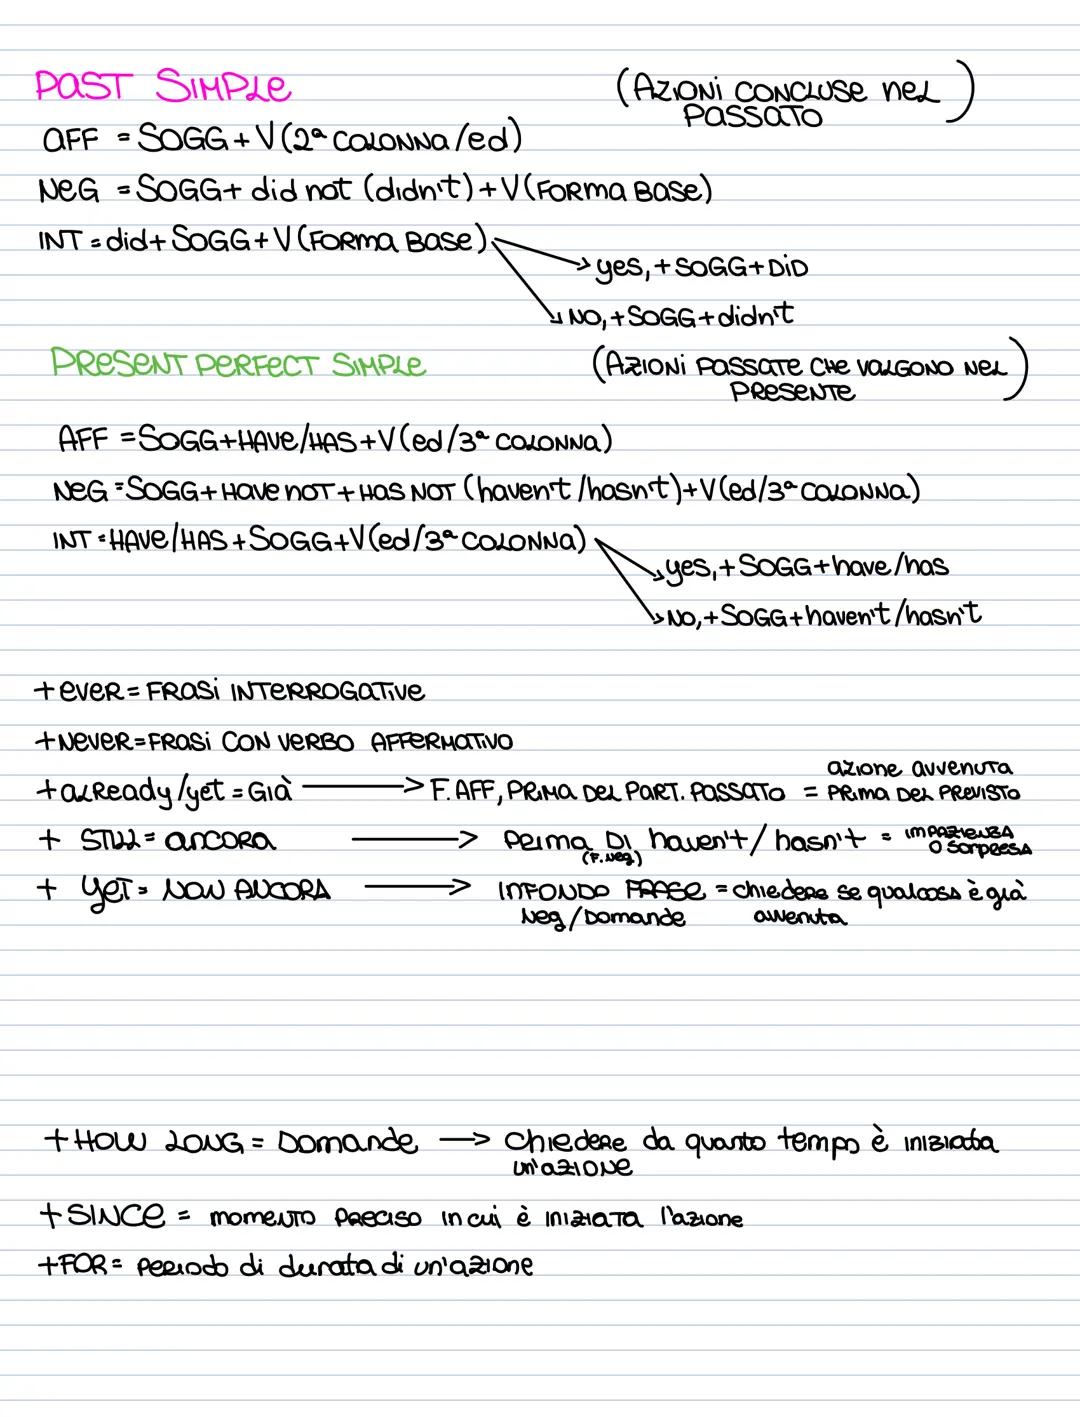 PAST SIMPLE (AZIONI CONCLUSE NEL PASSATO)
AFF = SOGG + V (2ª COLONNA/ed)
NEG = SOGG + did not (didn't) + V (FORMA BASE)
INT = did + SOGG + V (FORMA BASE)
yes, + SOGG + DID
NO, + SOGG + didn't
PRESENT PERFECT SIMPLE (AZIONI PASSATE CHE VALGONO NEL PRESENTE)
AFF = SOGG + HAVE/HAS + V (ed/3ª COLONNA)
NEG = SOGG + HAVE NOT + HAS NOT (haven't/hasn't) + V (ed/3ª COLONNA)
INT = HAVE/HAS + SOGG + V (ed/3ª COLONNA)
yes, + SOGG + have/has
NO, + SOGG + haven't/hasn't
+ ever = FRASI INTERROGATIVE
+ NEVER = FRASI CON VERBO AFFERMATIVO
+ aLReady/yet = Già → F. AFF, PRIMA DEL PART. PASSATO = azione avvenuta PRIMA DEL PREVISTO
+ STILL = ancora → Prima DI haven't/hasn't (F. neg) = IMPAZIENZA O SORPRESA
+ YET = NON ANCORA → INFONDO FRASE = chiedere se qualcosa è già
Neg/Domande avvenuta
+ HOW LONG = Domande → Chiedere da quanto tempo è iniziata
un'azione
+ SINCE = momento preciso in cui è iniziata l'azione
+ FOR = periodo di durata di un'azione